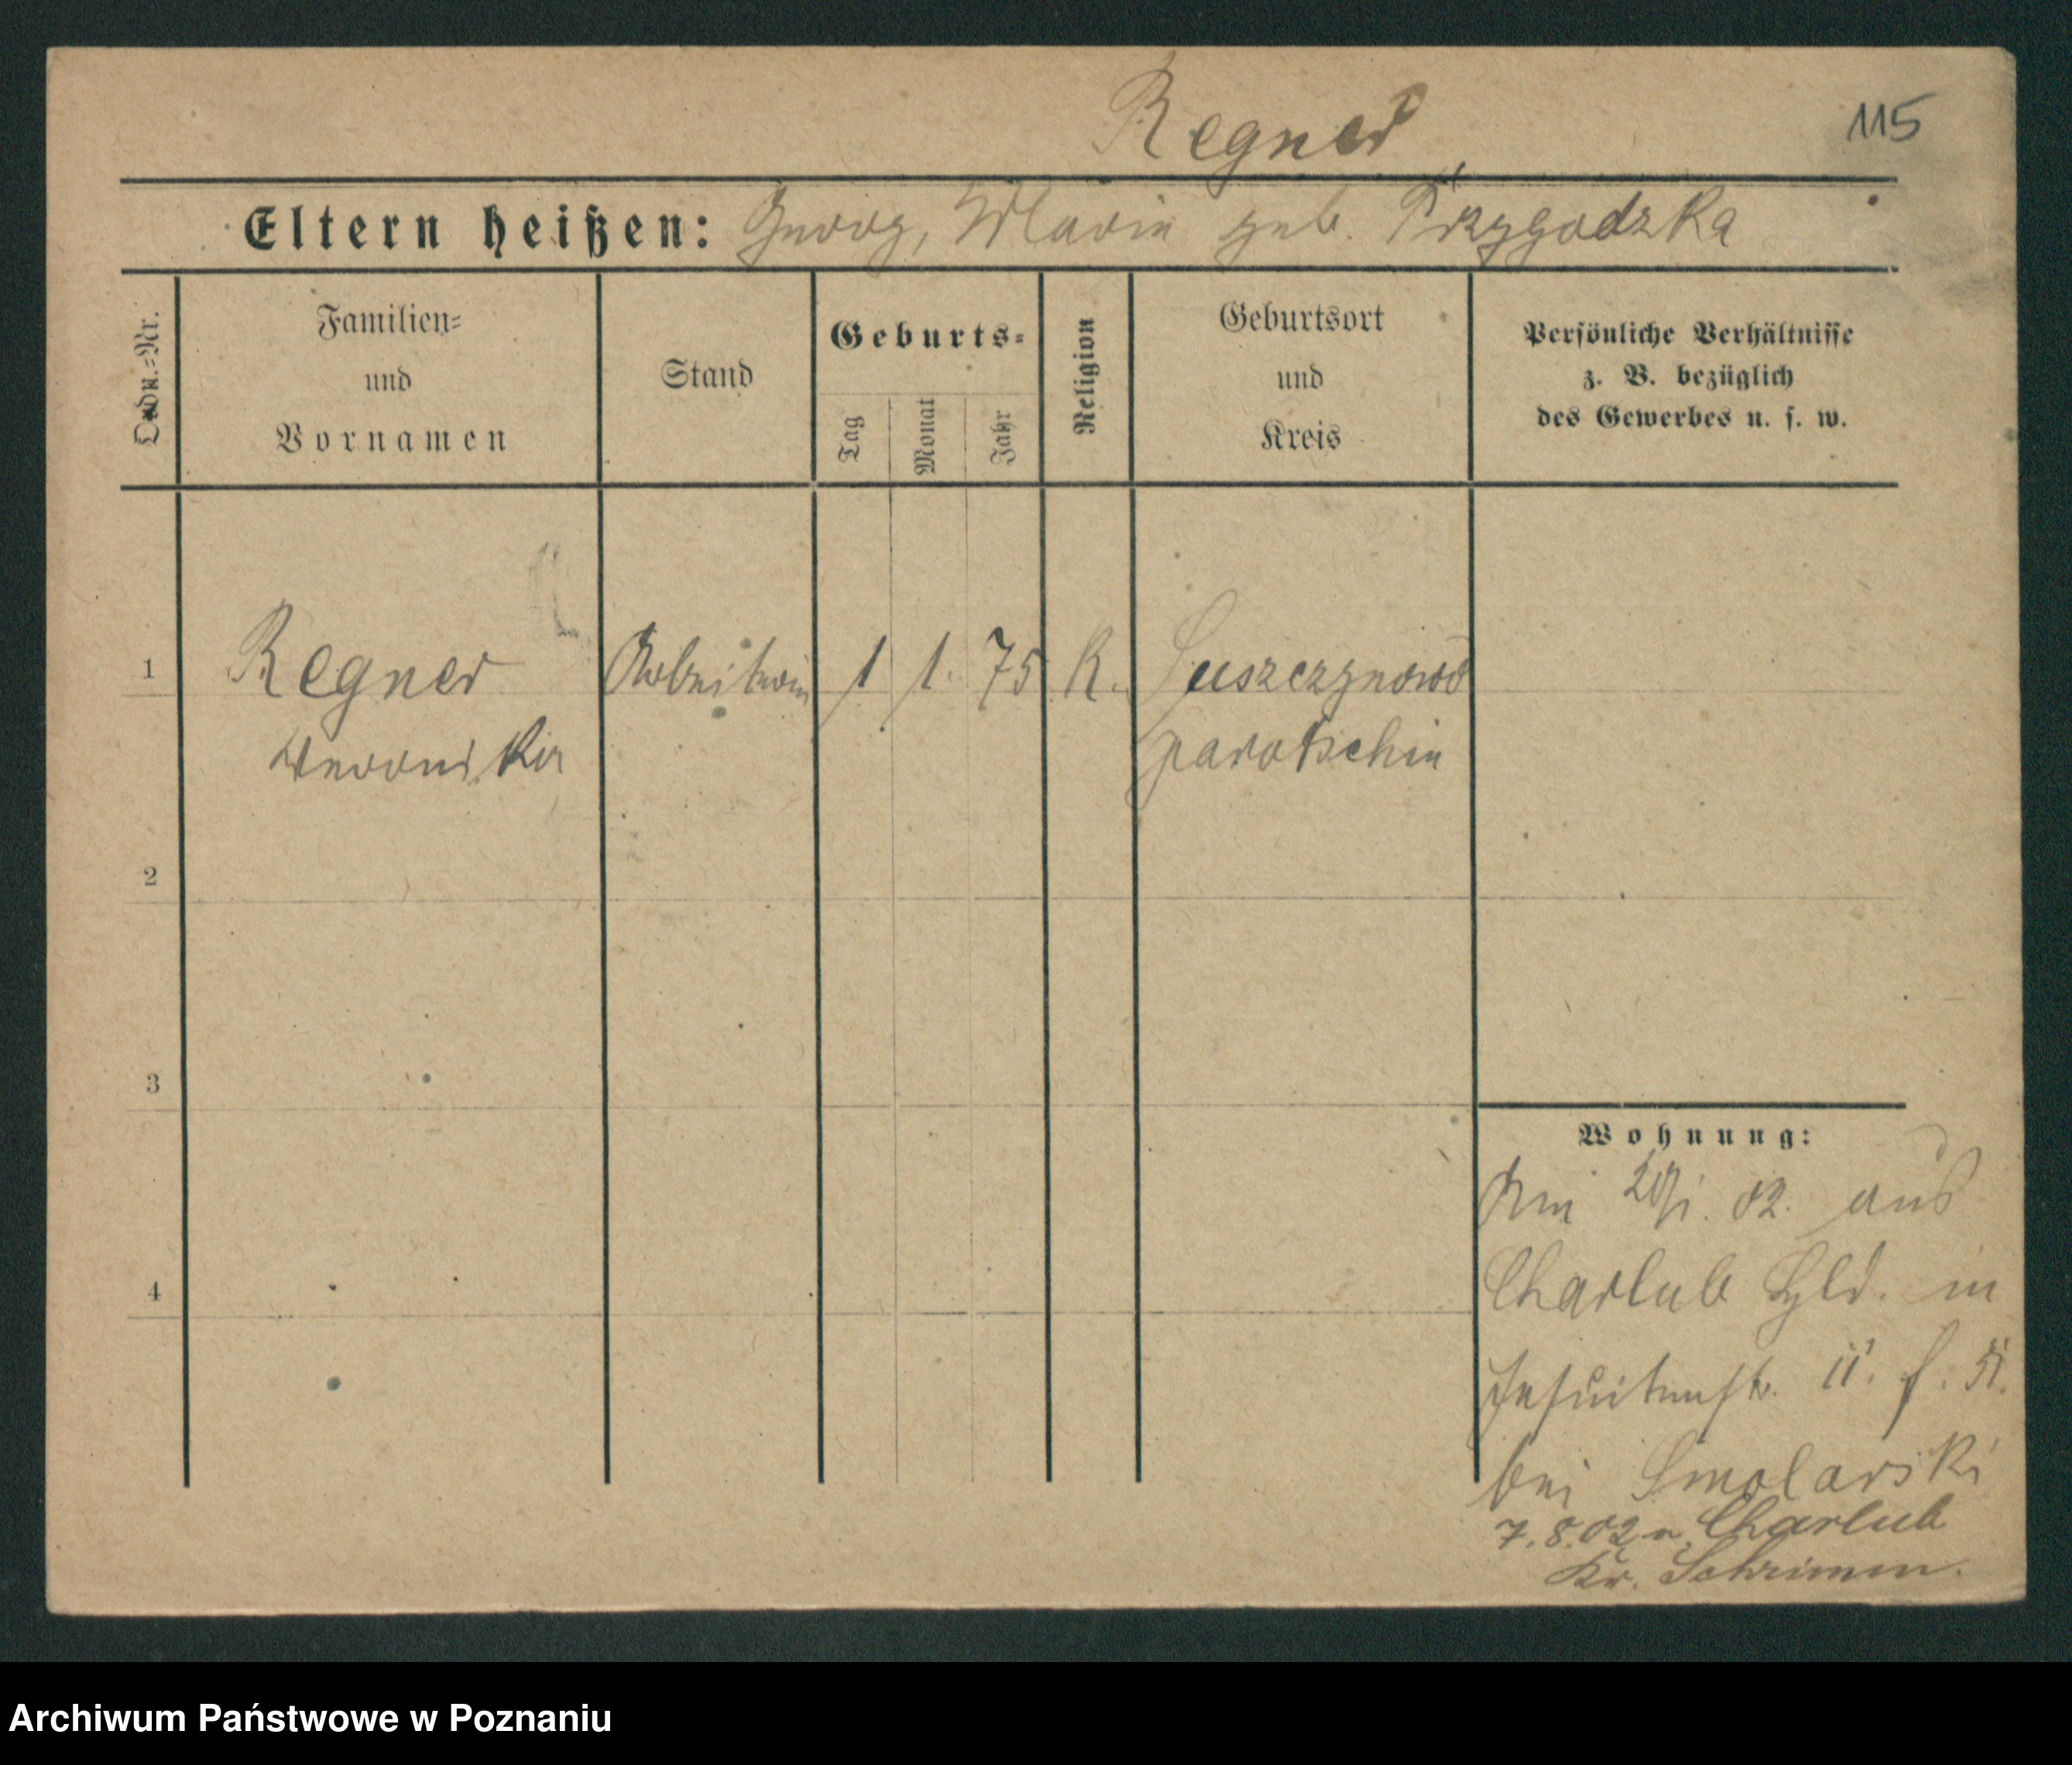 Regner
115
Eltern heißen: Georg, Marie geb. Przygodzka
Ordn.-Nr.
Familien-
und
Vornamen
Stand
Geburts-
Tag
Monat
Jahr
Religion
Geburtsort
und
Kreis
Persönliche Verhältnisse
z. B. bezüglich
des Gewerbes u. s. w.
1 Regner Arbeiterin 1 1. 75 K. Suszczynowo
Weronika Jarotschin
2
3
4
Wohnung:
Am 20/1. 02. aus
Charlub Hld. in
Jesuitenstr. 11. f. St.
bei Smolarski
7.8.02 n. Charlub
Kr. Schrimm.
Archiwum Państwowe w Poznaniu